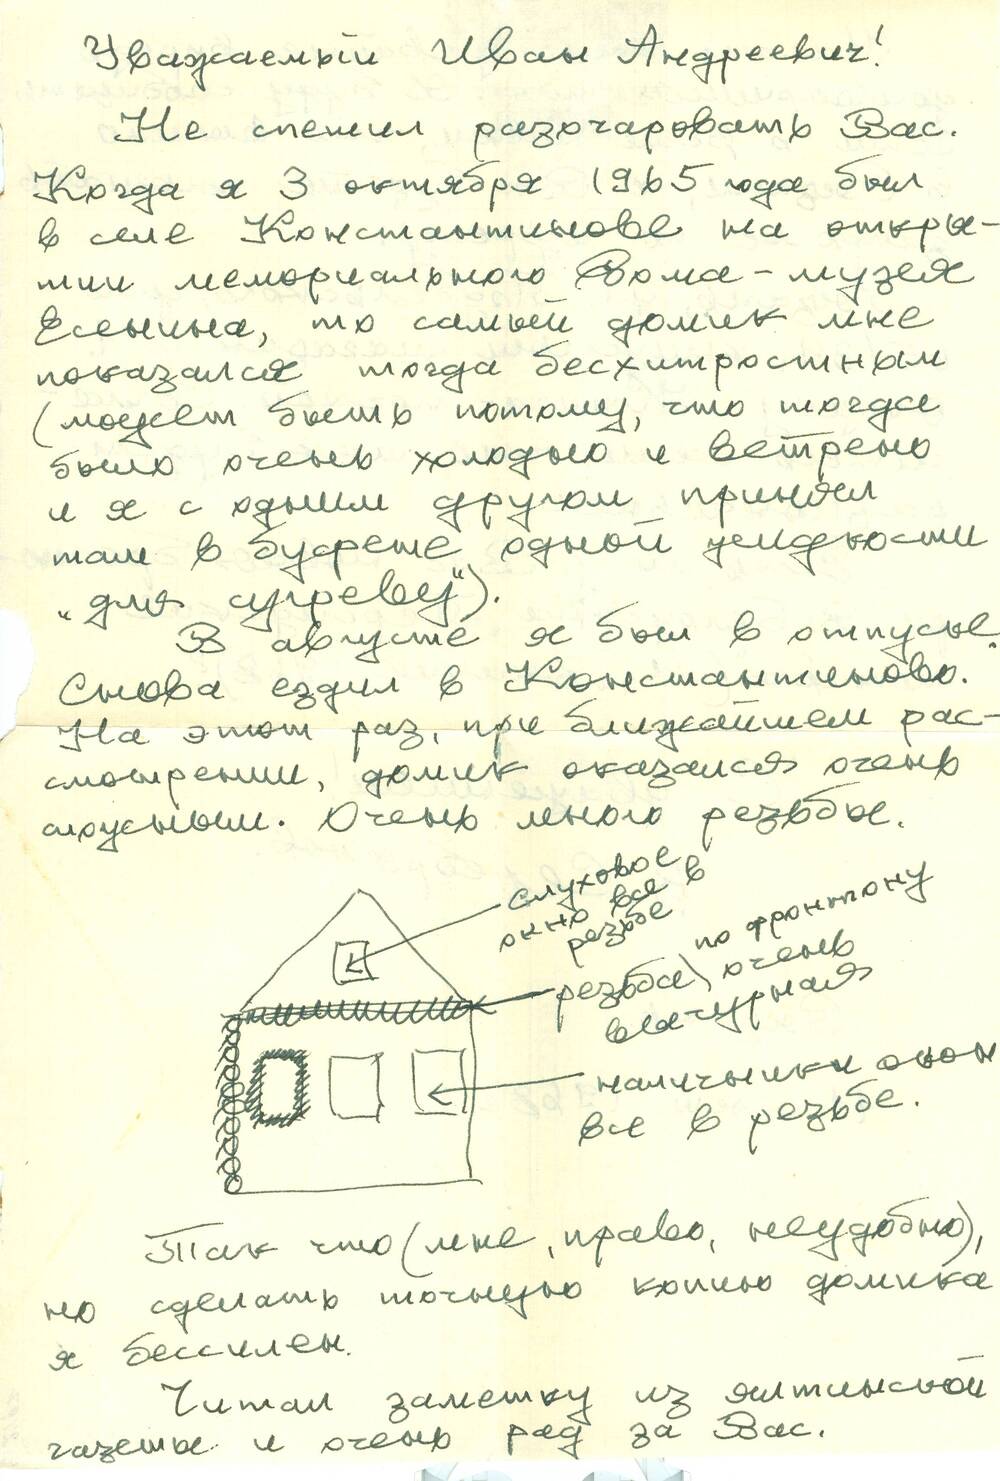 Уважаемый Иван Андреевич!
Не спешил разочаровать Вас.
Когда я 3 октября 1965 года был
в селе Константинове на откры-
тии мемориального Дома-музея
Есенина, то самый домик мне
показался тогда бесхитростным
(может быть потому, что тогда
было очень холодно и ветрено
и я с одним другом принял
там в буфете одной жидкости
"для сугреву").
В августе я был в отпуске.
Снова ездил в Константиново.
На этот раз, при ближайшем рас-
смотрении, домик оказался очень
искусным. Очень много резьбы.
слуховое
окно все в
резьбе
резьба по фронтону
очень
ажурная
наличники окон
все в резьбе.
Так что (мне, право, неудобно),
но сделать точную копию домика
я бессилен.
Читал заметку из ялтинской
газеты и очень рад за Вас.